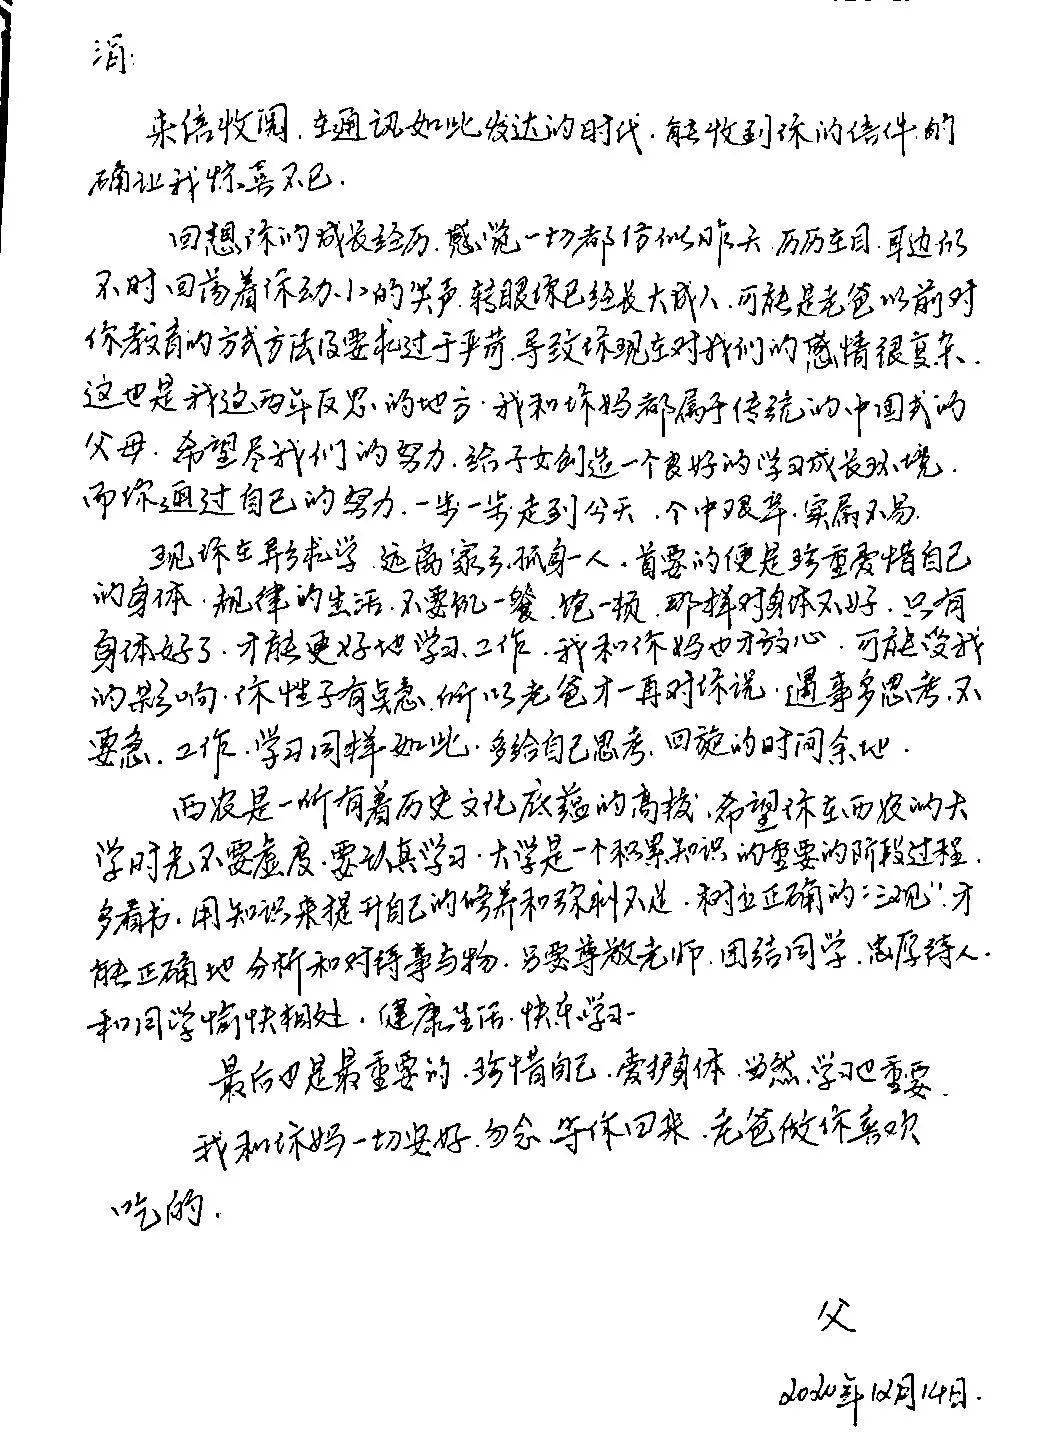 涓:
来信收阅.在通讯如此发达的时代.能收到你的信件.的
确让我惊喜不已.
回想你的成长经历.感觉一切都仿似昨天.历历在目.耳边似
不时回荡着你幼小的笑声.转眼你已经长大成人.可能是老爸以前对
你教育的方式方法及要求过于严苛.导致你现在对我们的感情很复杂.
这也是我这两年反思的地方.我和你妈都属于传统的中国式的
父母.希望尽我们的努力.给子女创造一个良好的学习成长环境.
而你通过自己的努力.一步一步走到今天.个中艰辛.实属不易.
现你在异乡求学.远离家乡.孤身一人.首要的便是珍重爱惜自己
的身体.规律的生活.不要饥一餐.饱一顿.那样对身体不好.只有
身体好了.才能更好地学习、工作.我和你妈也才放心.可能没我
的影响.你性子有点急.所以老爸才一再对你说.遇事多思考.不
要急.工作.学习同样如此.多给自己思考.回旋的时间余地.
西农是一所有着历史文化底蕴的高校.希望你在西农的大
学时光不要虚度.要认真学习.大学是一个积累知识的重要的阶段过程.
多看书.用知识来提升自己的修养和弥补不足.树立正确的"三观".才
能正确地分析和对待事与物.另要尊敬老师.团结同学.忠厚待人.
和同学愉快相处.健康生活.快乐学习.
最后也是最重要的.珍惜自己.爱护身体.当然.学习也重要.
我和你妈一切安好.勿念.等你回来.老爸做你喜欢
吃的.
父
2020年12月14日.